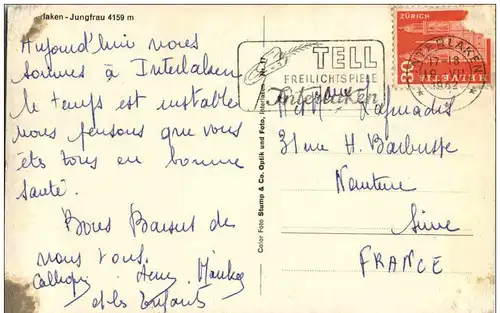 rlaken - Jungfrau 4159 m
Aujourd'hui nous
sommes à Interlaken
le temps est instable
nous pensons que vous
êtes tous en bonne
santé.
Bons Baisers de
nous tous.
et les Enfants
Color Foto Stump & Co. Optik und Foto, Interlaken Nr. 17
TELL
FREILICHTSPIELE
Interlaken
ZÜRICH
30
HELVETIA
INTERLAKEN
17-18
1962
31 rue H. Barbusse
Nanterre
Seine
FRANCE